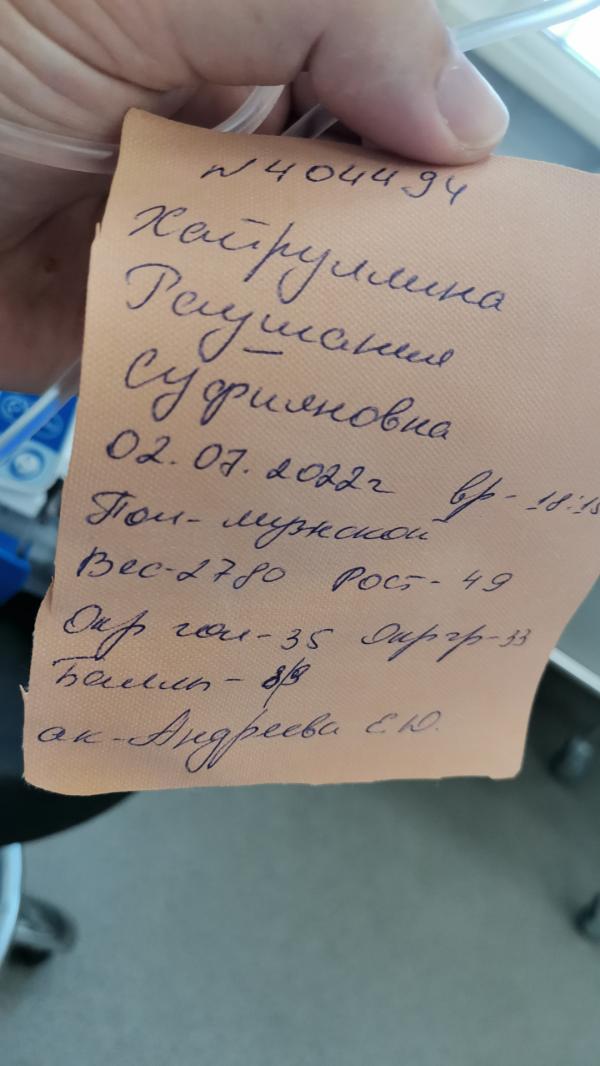 N 404494
Хайруллина
Раушания
Суфияновна
02.07.2022г вр - 18:15
Пол - мужской
Вес - 2780 Рост - 49
Окр гол - 35 Окр гр - 33
Баллы - 8/9
ак - Андреева Е.Ю.